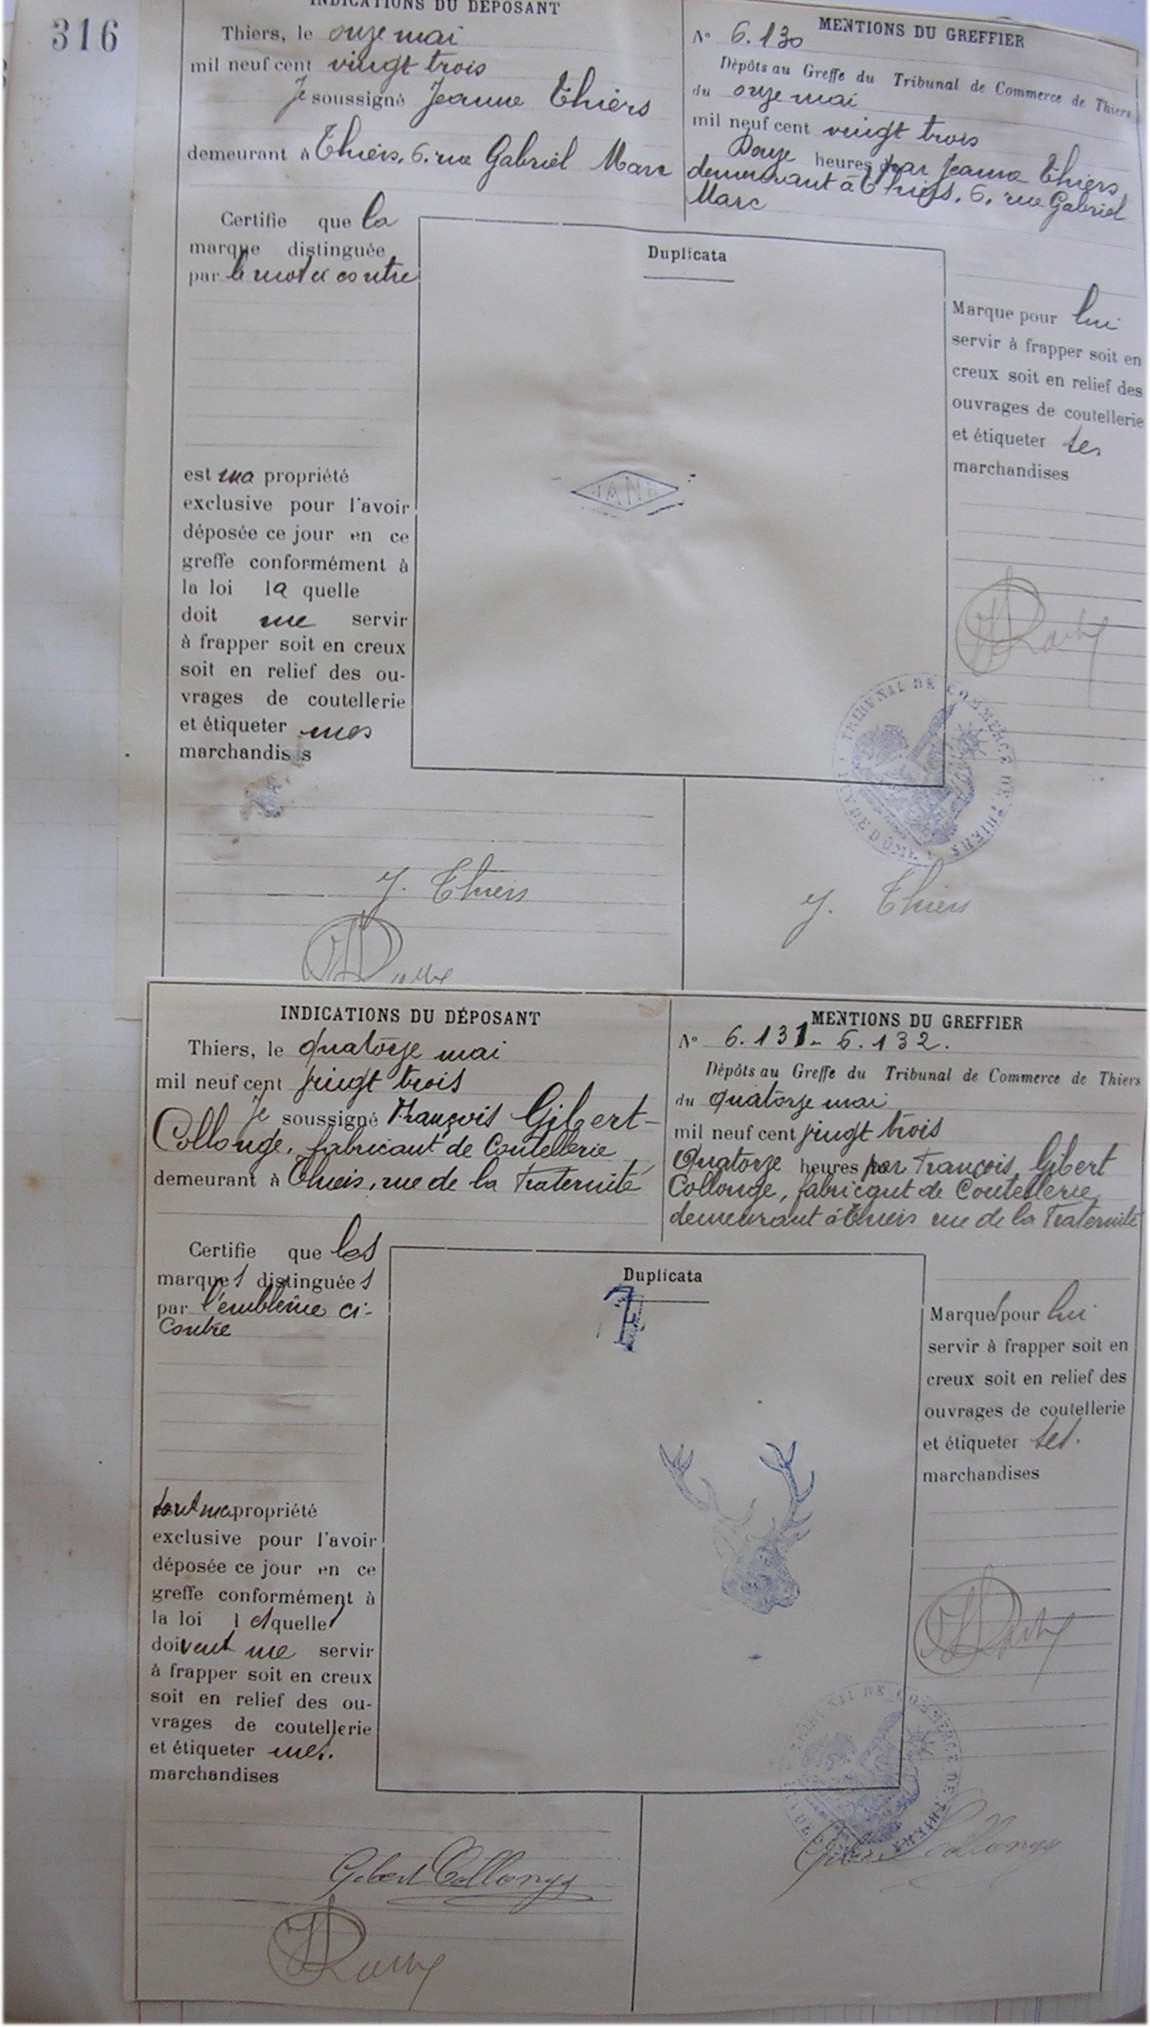 316
INDICATIONS DU DÉPOSANT
Thiers, le onze mai
mil neuf cent vingt trois
Je soussigné Jeanne Thiers
demeurant à Thiers, 6, rue Gabriel Marc
MENTIONS DU GREFFIER
N° 6.130
Dépôts au Greffe du Tribunal de Commerce de Thiers
du onze mai
mil neuf cent vingt trois
Douze heures par Jeanne Thiers
demeurant à Thiers, 6, rue Gabriel
Marc
Certifie que la
marque distinguée
par le mot ci contre
est ma propriété
exclusive pour l'avoir
déposée ce jour en ce
greffe conformément à
la loi laquelle
doit me servir
à frapper soit en creux
soit en relief des ou-
vrages de coutellerie
et étiqueter mes
marchandises
Duplicata
Marque pour lui
servir à frapper soit en
creux soit en relief des
ouvrages de coutellerie
et étiqueter ses
marchandises
TRIBUNAL DE COMMERCE DE THIERS
J. Thiers
J. Thiers
INDICATIONS DU DÉPOSANT
Thiers, le quatorze mai
mil neuf cent vingt trois
Je soussigné François Gibert-
Collonge, fabricant de Coutellerie
demeurant à Thiers, rue de la Fraternité
MENTIONS DU GREFFIER
N° 6.131 - 6.132.
Dépôts au Greffe du Tribunal de Commerce de Thiers
du quatorze mai
mil neuf cent vingt trois
Quatorze heures par François Gibert
Collonge, fabricant de Coutellerie
demeurant à Thiers rue de la Fraternité
Certifie que les
marques distinguées
par l'emblème ci-
contre
sont ma propriété
exclusive pour l'avoir
déposée ce jour en ce
greffe conformément à
la loi lesquelles
doivent me servir
à frapper soit en creux
soit en relief des ou-
vrages de coutellerie
et étiqueter mes.
marchandises
Duplicata
Marques pour lui
servir à frapper soit en
creux soit en relief des
ouvrages de coutellerie
et étiqueter ses.
marchandises
Gibert Collonge
Gibert Collonge